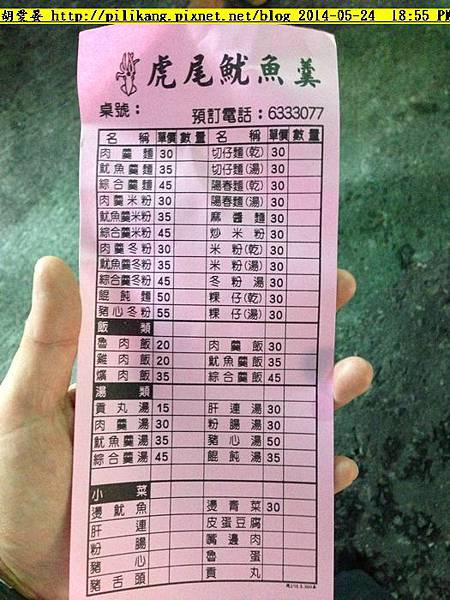 胡雯晏 http://pilikang.pixnet.net/blog 2014-05-24 18:55 PM
虎尾魷魚羹
桌號： 預訂電話：6333077
名稱 單價 數量 名稱 單價 數量
肉羹麵 30 切仔麵(乾) 30
魷魚羹麵 35 切仔麵(湯) 30
綜合羹麵 45 陽春麵(乾) 30
肉羹米粉 30 陽春麵(湯) 30
魷魚羹米粉 35 麻醬麵 30
綜合羹米粉 45 炒米粉 30
肉羹冬粉 30 米粉(乾) 30
魷魚羹冬粉 35 米粉(湯) 30
綜合羹冬粉 45 冬粉湯 30
餛飩麵 50 粿仔(乾) 30
豬心冬粉 55 粿仔(湯) 30
飯類
魯肉飯 20 肉羹飯 30
雞肉飯 20 魷魚羹飯 35
爌肉飯 35 綜合羹飯 45
湯類
貢丸湯 15 肝連湯 30
肉羹湯 30 粉腸湯 30
魷魚羹湯 35 豬心湯 50
綜合羹湯 45 餛飩湯 35
小菜
燙魷魚 燙青菜 30
肝連 皮蛋豆腐
粉腸 嘴邊肉
豬心 魯蛋
豬舌頭 貢丸